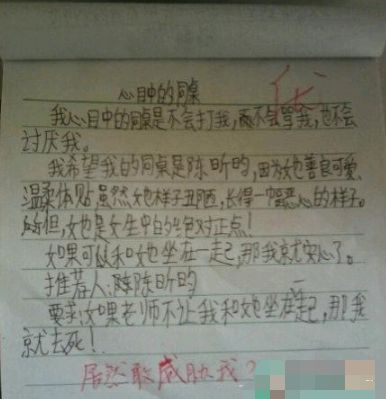 心目中的同桌
优
我心目中的同桌是不会打我,而不会骂我,也不会
讨厌我。
我希望我的同桌是陈昕昀,因为她善良可爱、
温柔体贴,虽然她样子丑陋,长得一幅恶心的样子。
但,她也是女生中的绝对正点!
如果可以和她坐在一起,那我就安心了。
推荐人:陈昕昀
要求:如果老师不让我和她坐在一起,那我
就去死!
居然敢威胁我?